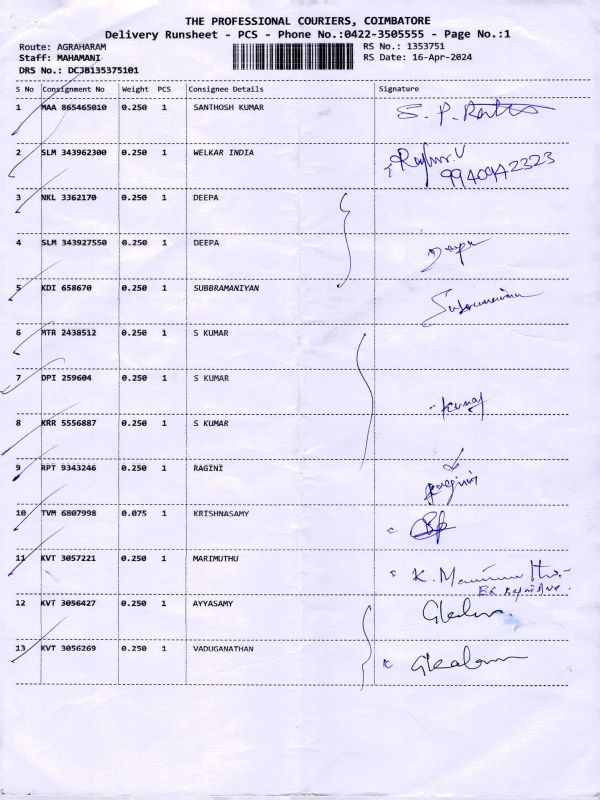 THE PROFESSIONAL COURIERS, COIMBATORE
Delivery Runsheet - PCS - Phone No.:0422-3505555 - Page No.:1
Route: AGRAHARAM
RS No.: 1353751
Staff: MAHAMANI
RS Date: 16-Apr-2024
DRS No.: DCJB135375101
S No Consignment No Weight PCS Consignee Details Signature
1 MAA 865465010 0.250 1 SANTHOSH KUMAR S. P.
2 SLM 343962300 0.250 1 WELKAR INDIA
9940942323
3 NKL 3362170 0.250 1 DEEPA
4 SLM 343927550 0.250 1 DEEPA
5 KDI 658670 0.250 1 SUBBRAMANIYAN
6 MTR 2438512 0.250 1 S KUMAR
7 DPI 259604 0.250 1 S KUMAR
Kumar
8 KRR 5556887 0.250 1 S KUMAR
9 RPT 9343246 0.250 1 RAGINI
Ragini
10 TVM 6807998 0.075 1 KRISHNASAMY
11 KVT 3057221 0.250 1 MARIMUTHU K.
12 KVT 3056427 0.250 1 AYYASAMY
13 KVT 3056269 0.250 1 VADUGANATHAN